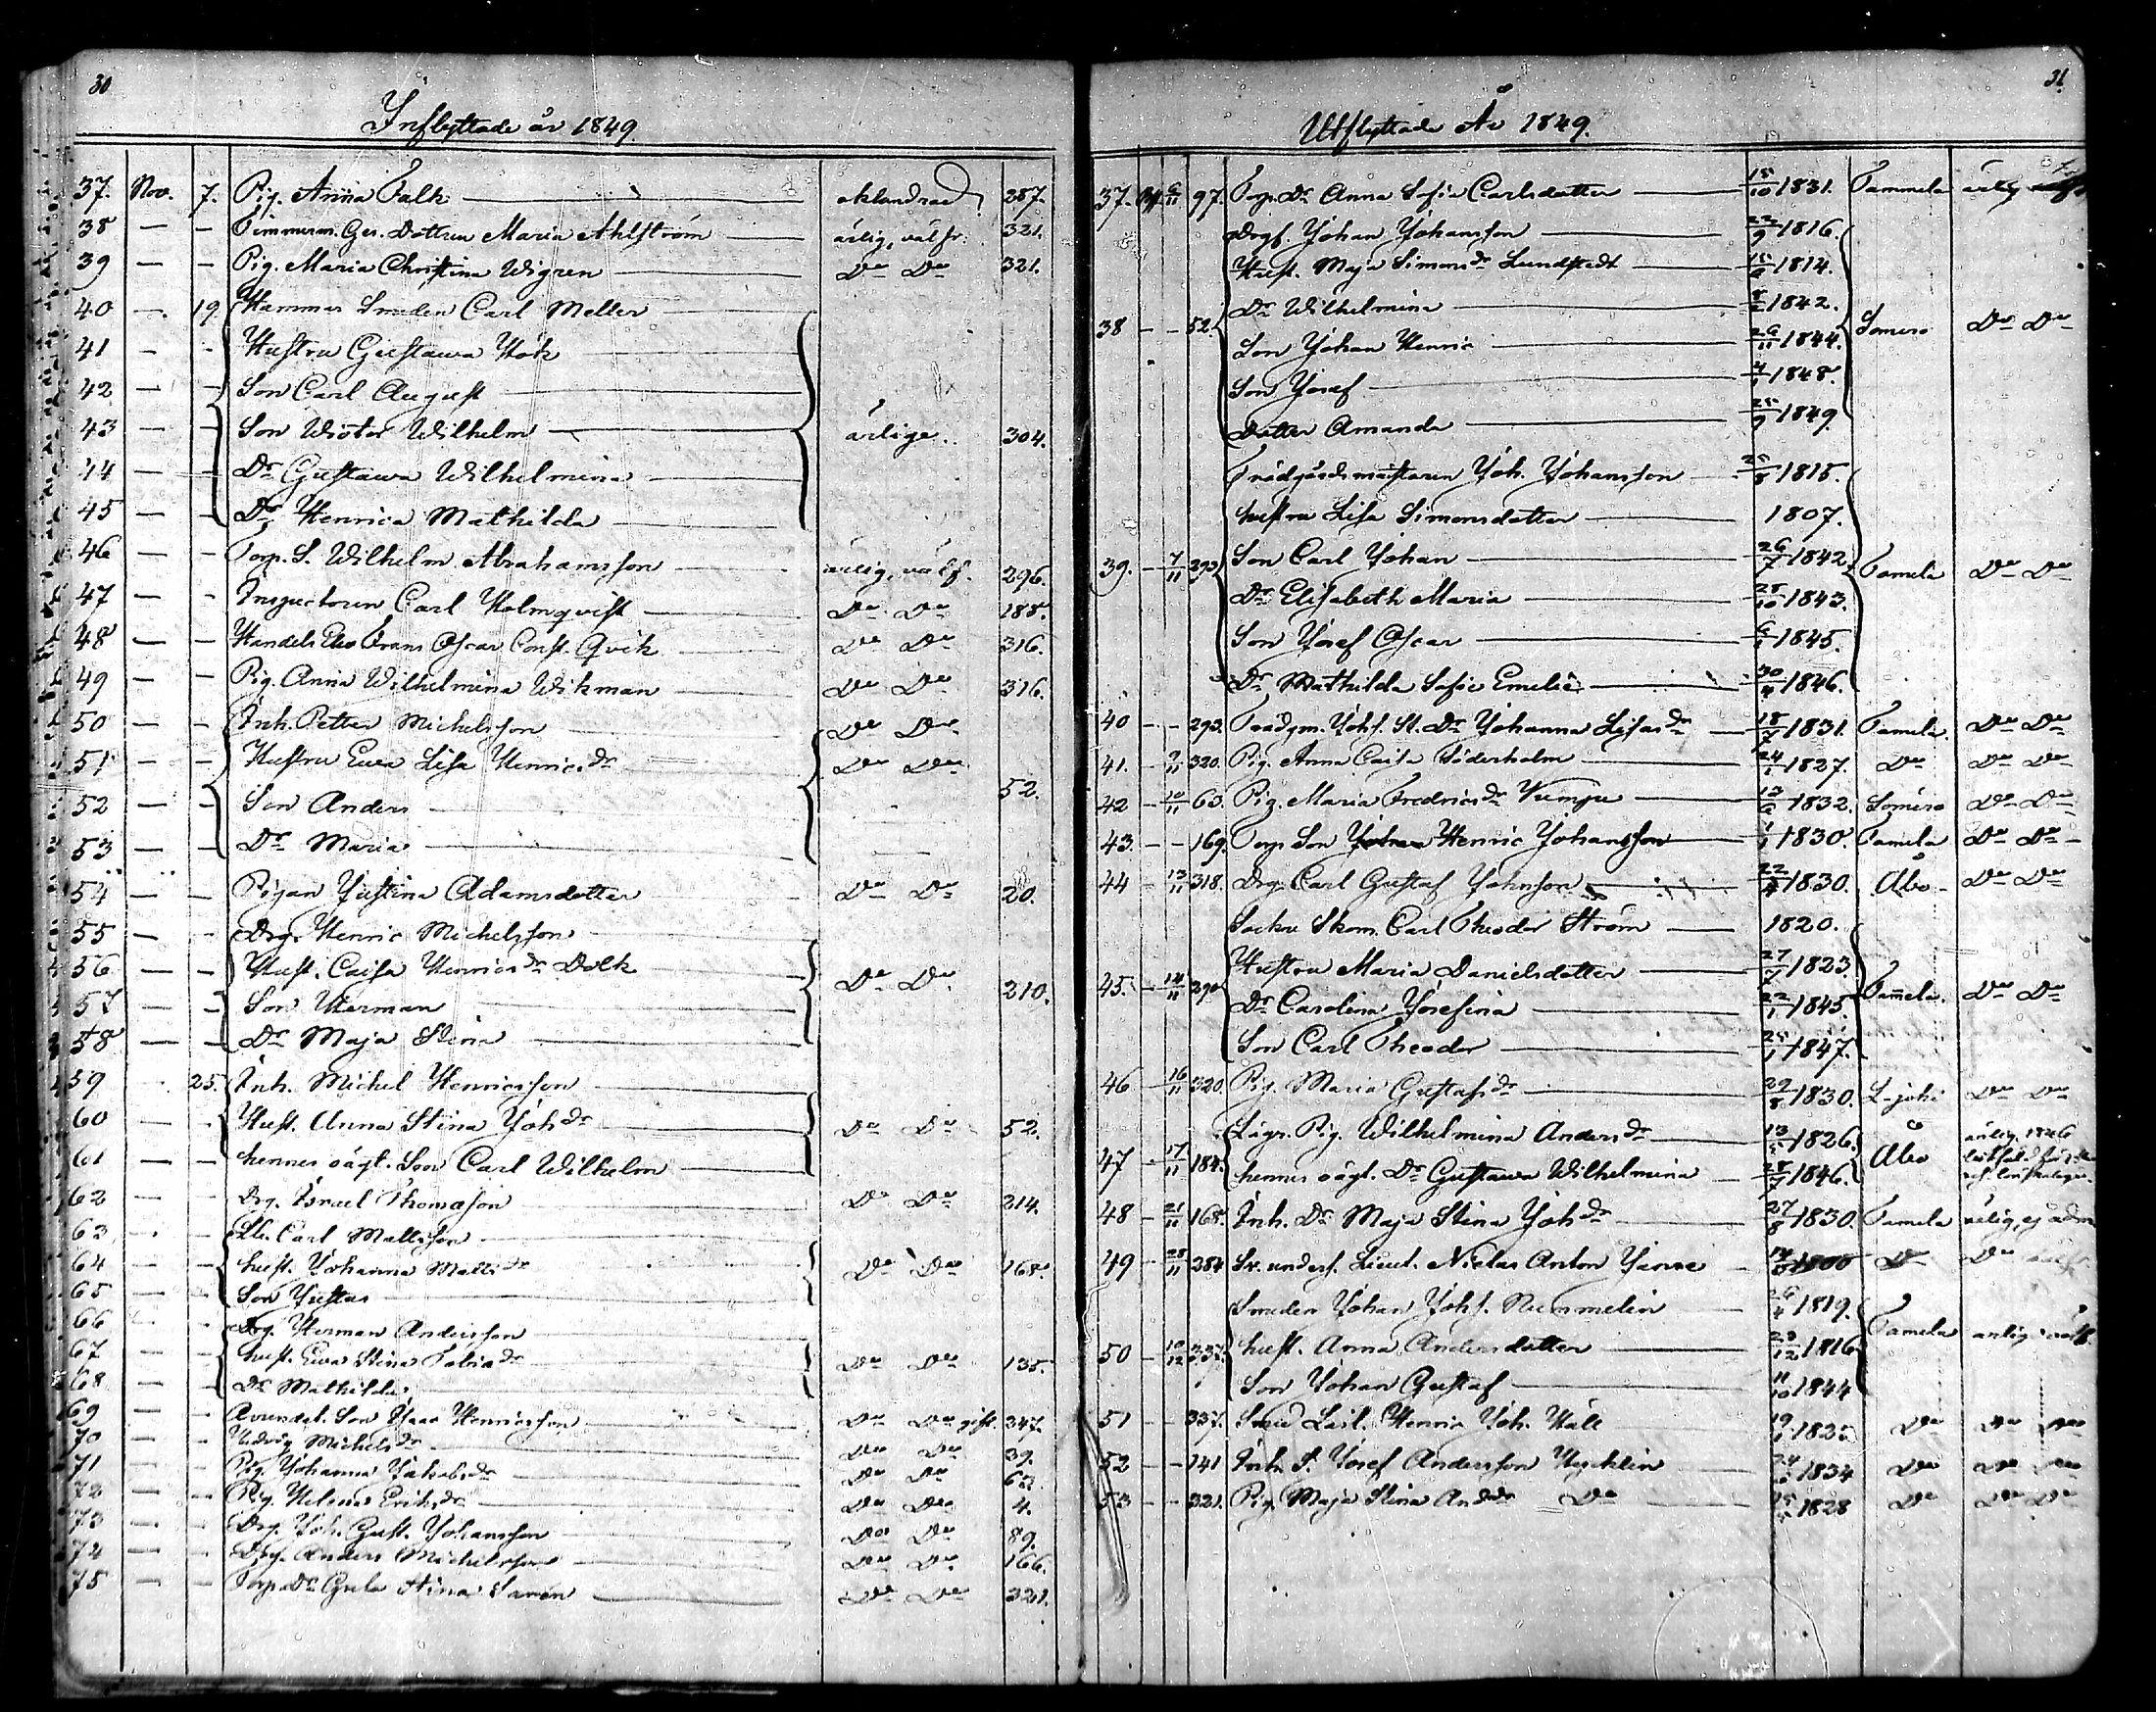 30
Inflyttade år 1849.
37. Nov. 7. Pig. Anna Falk oklandrad 287.
38 — — Timmerm. Ges. Dottren Maria Ahlström ärlig, väl fr. 321.
39 — — Pig. Maria Christina Wigren Do Do 321.
40 — 19 Hammar Smeden Carl Meller
41 — — Hustru Gustawa Hök
42 — — Son Carl August
43 — — Son Wictor Wilhelm ärlige 304.
44 — — Dr Gustawa Wilhelmina
45 — — Dr Henrica Mathilda
46 — — Torp. S. Wilhelm Abrahamsson ärlig, välf. 296.
47 — — Inspectoren Carl Holmqvist Do Do 188.
48 — — Handels Frans Oscar Const. Qvik Do Do 316.
49 — — Pig. Anna Wilhelmina Wikman Do Do 316.
50 — — Inh. Petter Michelsson Do Do
51 — — Hustru Ewa Lisa Henricsdr Do Do
52 — — Son Anders 52.
53 — — Dr Maria
54 — — Pigan Justina Adamsdotter Do Do 20.
55 — — Drg. Henric Michelsson
56 — — Hust. Caisa Henricsdr Dolk Do Do 210.
57 — — Son Herman
58 — — Dr Maja Stina
59 25. Inh. Michel Henricsson
60 — — Hust. Anna Stina Johdr Do Do 52.
61 — — hennes oägt. Son Carl Wilhelm
62 — — Drg. Israel Thomasson Do Do 214.
63 — — Carl Mattsson
64 — — hust. Johanna Mattsdr Do Do 168.
65 — — Son Justus
66 — — Drg. Herman Andersson
67 — — hust. Ewa Stina Tobiadr Do Do 135.
68 — — Dr Mathilda
69 — — Arrendat. Son Isaac Henricsson Do Do gift. 347.
70 — — Hedvig Michelsdr Do Do 39.
71 — — Pig. Johanna Jakobsdr Do Do 62.
72 — — Pig. Helena Eriksdr Do Do 4.
73 — — Drg. Joh. Gust. Johansson Do Do 89.
74 — — Drg. Anders Michelsson Do Do 166.
75 — — Torp. Dr Gula Stina Saren Do Do 321.
31.
Utflyttade År 1849.
37. 6/11 97. Torp. Dr Anna Sofia Carlsdotter 15/10 1831. Tammela ärlig
Drgs. Johan Johansson 22/9 1816.
Hust. Maja Simonsdr Lundstedt 1814.
Dr Wilhelmina 1842.
38 — — 52. Son Johan Henric 26/11 1844. Somero Do Do
Son Josef 4/1 1848.
Dotter Amanda 25/9 1849
Trädgårdsmästaren Joh. Johansson 1815.
hustru Lisa Simonsdotter 1807.
39. — 7/11 293 Son Carl Johan 26/7 1842. Tamela Do Do
Dr Elisabeth Maria 28/10 1843.
Son Josef Oscar 6/1 1845.
Dr Mathilda Sofie Emelie 30/4 1846.
40 — — 293. Trädgm. Johs. St. Dr Johanna Lisasdr 18/7 1831. Tamela. Do Do
41. — 9/11 320. Pig. Anna Caisa Söderholm 24/1 1827. Do Do Do
42 — 10/11 63. Pig. Maria Fredricsdr 1832. Somero Do Do
43. — — 169. Torp. Son Henric Johansson 1/1 1830. Tamela Do Do
44 — 13/11 318. Drg. Carl Gustaf Johnsson 1830. Åbo Do Do
Sockne Skom. Carl Theodor Ström 1820.
Hustru Maria Danielsdotter 27/7 1823.
45. — 14/11 290 Dr Carolina Josefina 22/1 1845. Tamela. Do Do
Son Carl Theodor 25/1 1847.
46 — 16/11 320 Pig. Maria Gustafsdr 29/8 1830. L-joki Do Do
Lögr. Pig. Wilhelmina Andersdr 1826. ärlig, 1846
47 — 17/11 184. hennes oägt. Dr Gustawa Wilhelmina 28/7 1846. Åbo
48 — 21/11 168. Inh. Dr Maja Stina Johdr 27/8 1830 Tamela ärlig, ej
49 — 28/11 284 Lieut. Niclas Anton 1800 Do Do
Smeden Johan Johs. Nummelin 26/4 1819.
50 — 10/12 337. hust. Anna Andersdotter 23/12 1816 Tamela ärlig
Son Johan Gustaf 11/10 1844
51 — — 337. Smed Lärl. Henric Joh. Häll Do Do Do
52 — — 141 Inh. S. Josef Andersson Hycklin 1834 Do Do Do
53 — — 321. Pig. Maja Stina Andrsdr Do 1828 Do Do Do